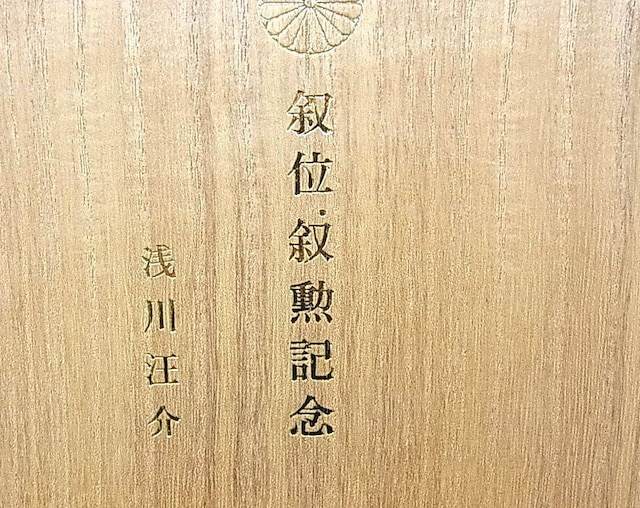 叙位・叙勲記念
浅川汪介